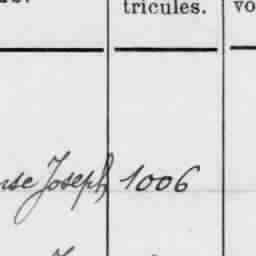 tricules.
vo
Joseph 1006